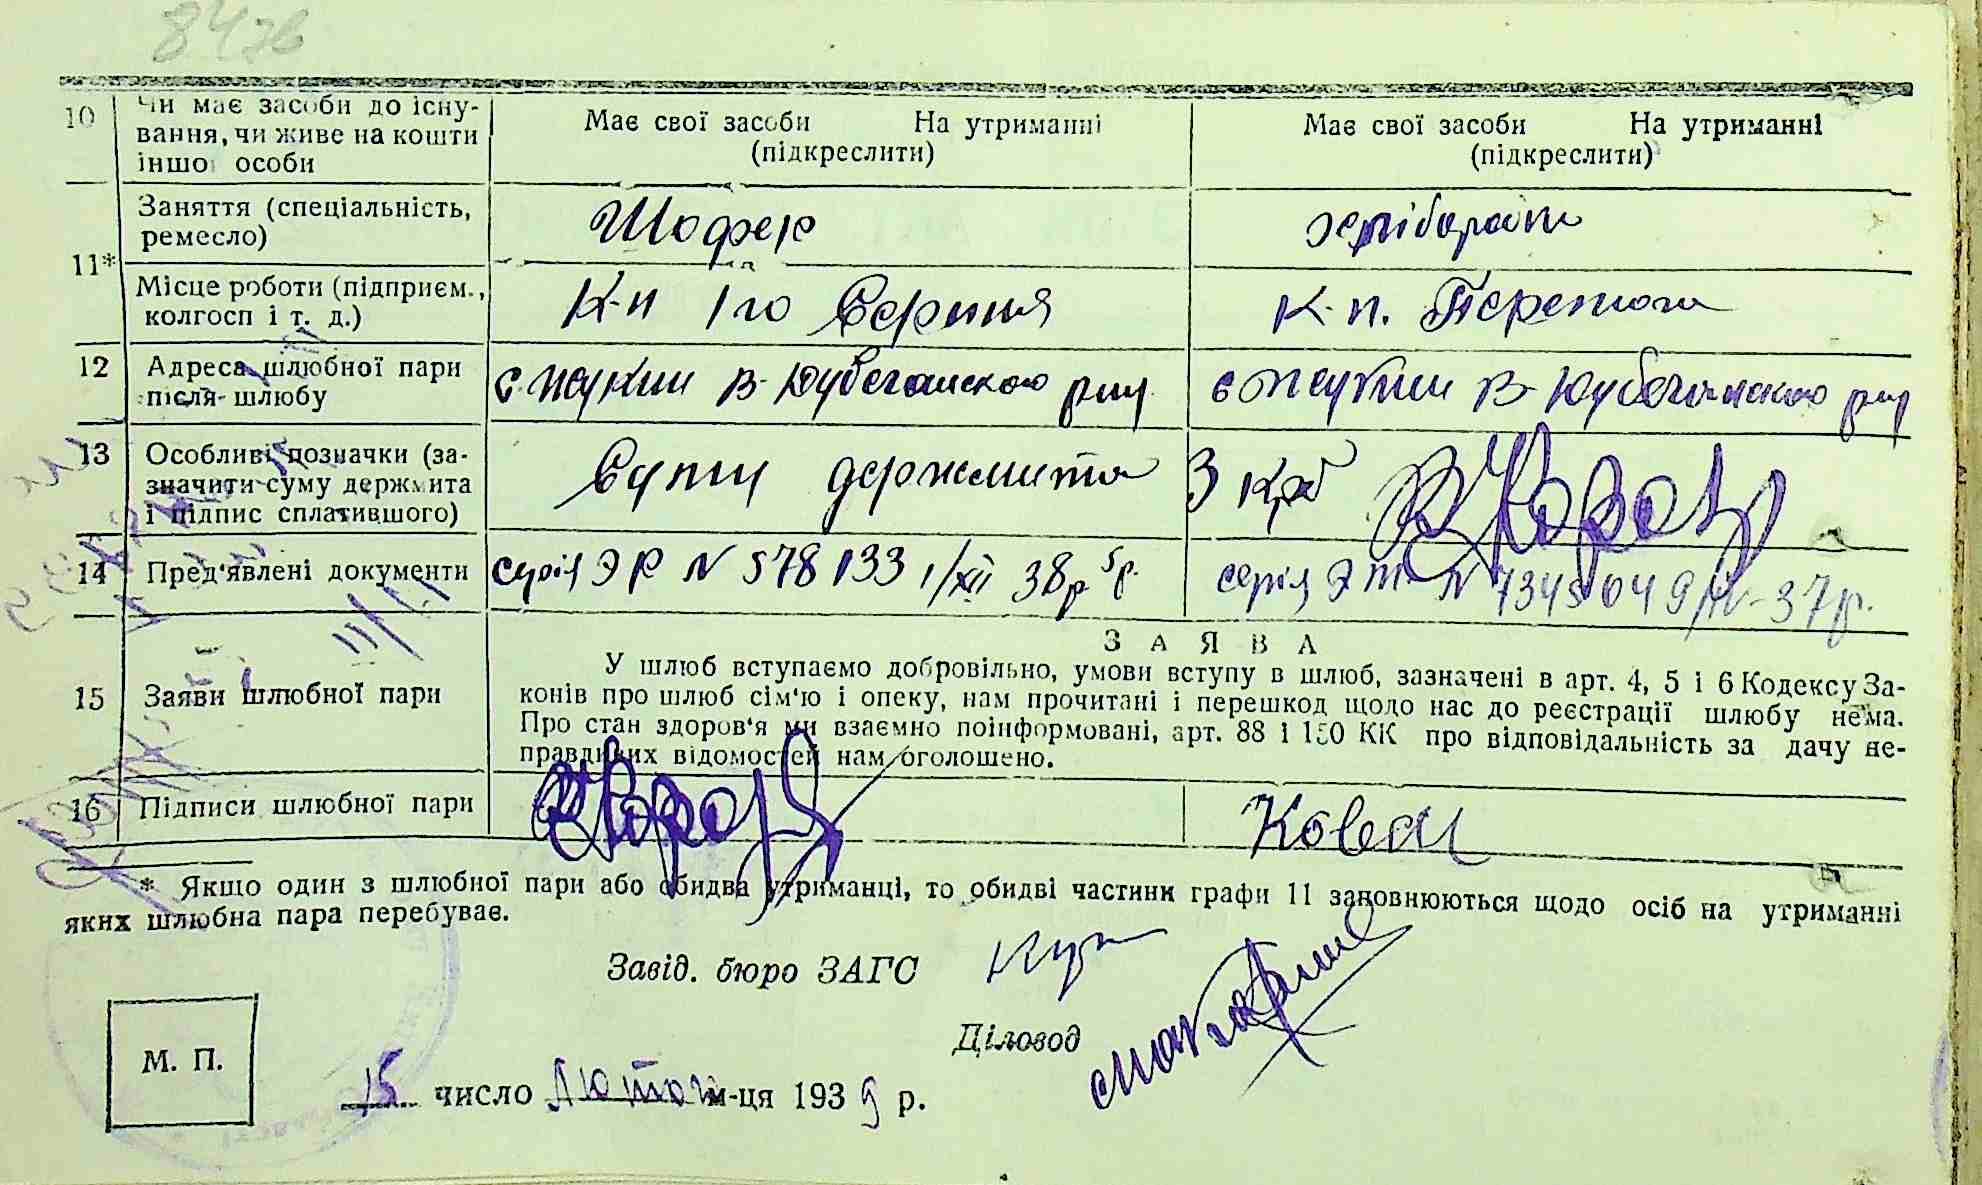 10 Чи має засоби до існу-
вання, чи живе на кошти
іншої особи
Має свої засоби На утриманні
(підкреслити)
Має свої засоби На утриманні
(підкреслити)
11*
Заняття (спеціальність,
ремесло)
Шофер
Місце роботи (підприєм.,
колгосп і т. д.)
К-п 1го Серпня
К-п. Перемога
12 Адреса шлюбної пари
після шлюбу
с. Жуківці В-
с Жуківці В-
13 Особливі позначки (за-
значити суму держмита
і підпис сплатившого)
Суму держмита 3 крб
14 Пред'явлені документи
серія ЭР N 578133 1/XII 38р
серія N 37р.
15 Заяви шлюбної пари
ЗАЯВА
У шлюб вступаємо добровільно, умови вступу в шлюб, зазначені в арт. 4, 5 і 6 Кодексу За-
конів про шлюб сім'ю і опеку, нам прочитані і перешкод щодо нас до реєстрації шлюбу нема.
Про стан здоров'я ми взаємно поінформовані, арт. 88 і 150 КК про відповідальність за дачу не-
правдивих відомостей нам оголошено.
16 Підписи шлюбної пари
* Якщо один з шлюбної пари або обидва утриманці, то обидві частини графи 11 заповнюються щодо осіб на утриманні
яких шлюбна пара перебуває.
Завід. бюро ЗАГС
Діловод
М. П.
15 число Лютого м-ця 1939 р.